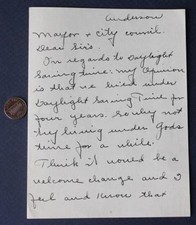 Anderson
Mayor & city council.
Dear Sirs.
In regards to Daylight
Saving time. my Opinion
is that we lived under
Daylight Saving Time for
four years. so why not
try living under Gods
time for a while.
Think it would be a
welcome change and I
feel and know that